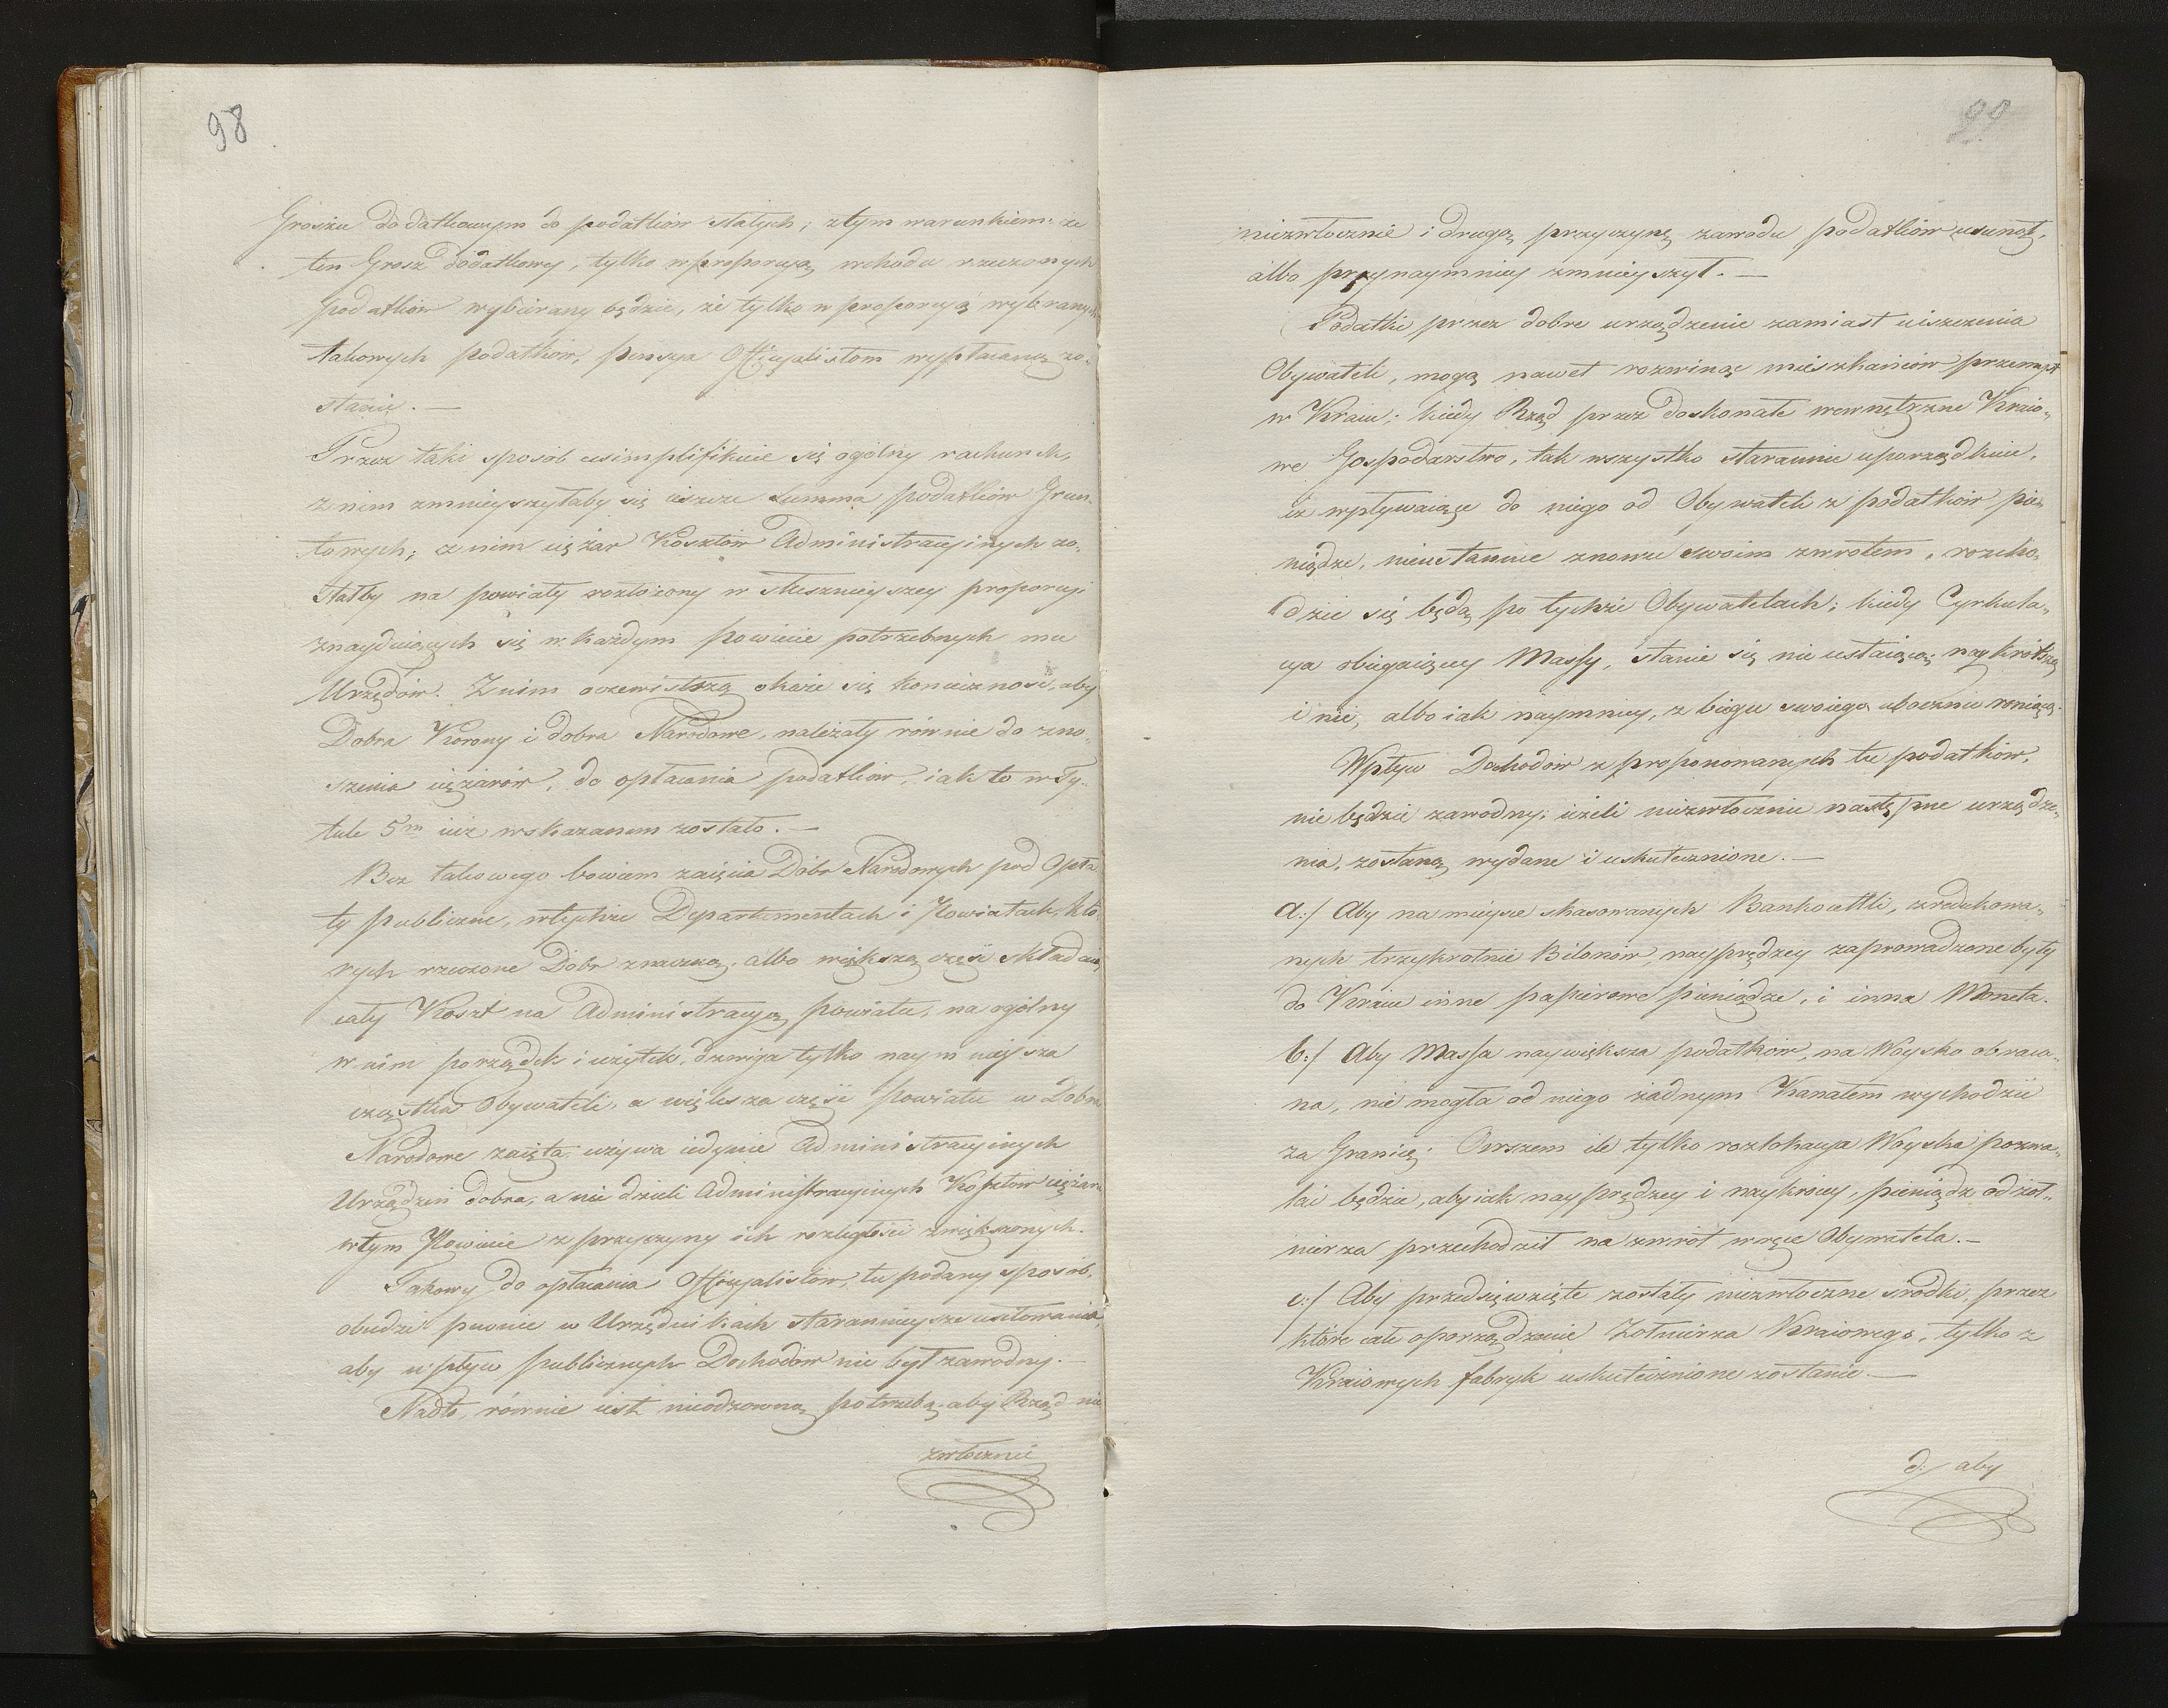 98
Groszu dodatkowym do podatków stałych; z tym warunkiem: że
ten Grosz dodatkowy, tylko w proporcyą wchodu rzeczonych
podatków wybierany będzie, że tylko w proporcyą wybranych
takowych podatków, pensya Officyalistom wypłacaną zo„
stanie. —
Przez taki sposób usimplifikuie się ogólny rachunek,
z nim zmnieyszyłaby się ieszcze summa podatków Grun„
towych; z nim ciężar Kosztów Administracyinych zo„
stałby na powiaty rozłożony w słusznieyszey proporcyi
znayduiących się w każdym powiecie potrzebnych mu
Urzędów. Z nim oczewistszą okaże się konieczność, aby
Dobra Korony i dobra Narodowe, należały równie do zno„
szenia ciężarów, do opłacania podatków, iak to w Ty„
tule 5m iuż wskazanem zostało. —
Bez takowego bowiem zaięcia Dóbr Narodowych pod Opła
ty publiczne, w tychże Departamentach i Powiatach, któ„
rych rzeczone Dobr znaczną, albo większą część składaią
cały Koszt na Administracyą powiatu, na ogólny
w nim porządek i użytek, dzwiga tylko naymnieysza
cząstka Obywateli, a większa część powiatu w Dobra
Narodowe zaięta, używa iedynie Administracyinych
Urządzeń dobra, a nie dzieli Administracyinych Kosztów ciężaru
w tym Powiecie z przyczyny ich rozległości zwiększonych.
Takowy do opłacania Officyalistów, tu podany sposób,
obudzi pewnie w Urzędnikach starannieysze usiłowania,
aby wpływ publicznych Dochodów nie był zawodny. —
Nadto, równie iest nieodzowną potrzebą, aby Rząd nie
zwłocznie
99
niezwłocznie i drugą przyczynę zawodu podatków usunął,
albo przynaymniey zmnieyszył. —
Podatki przez dobre urządzenie zamiast uiszczenia
Obywateli, mogą nawet rozwinąć mieszkańców przemysł
w Kraiu; kiedy Rząd przez doskonałe wewnętrzne Kraio„
we Gospodarstwo, tak wszystko starannie uporządkuie,
iż wpływaiące do niego od Obywateli z podatków pie„
niądze, nieustannie znowu swoim zwrotem, rozcho„
dzić się będą po tychże Obywatelach; kiedy Cyrkula„
cya obiegaiącey Massy, stanie się nieustaiącą, naykrótszą
i nic, albo iak naymniey, z biegu swoiego ubocznie roniącą.
Wpływ Dochodów z proponowanych tu podatków,
nie będzie zawodny; ieżeli niezwłocznie następne urządze„
nia, zostaną wydane i uskutecznione. —
a:/ Aby na mieysce skasowanych Bankocetli, zredukowa„
nych trzykrotnie Bilonów, nayprędzey zaprowadzone były
do Kraiu inne papierowe pieniądze, i inna Moneta.
b:/ Aby Massa naywiększa podatków, na Woysko obraca„
na, nie mogła od niego żadnym Kanałem wychodzić
za Granicę; Owszem ile tylko rozlokacya Woyska pozwa„
lać będzie, aby iak nayprędzey i naykrócey, pieniądz od żoł„
nierza przechodził na zwrót w ręce Obywatela. —
c:/ Aby przedsięwzięte zostały niezwłoczne środki, przez
które całe oporządzenie Żołnierza Kraiowego, tylko z
Kraiowych fabryk uskutecznione zostanie. —
d:/ aby